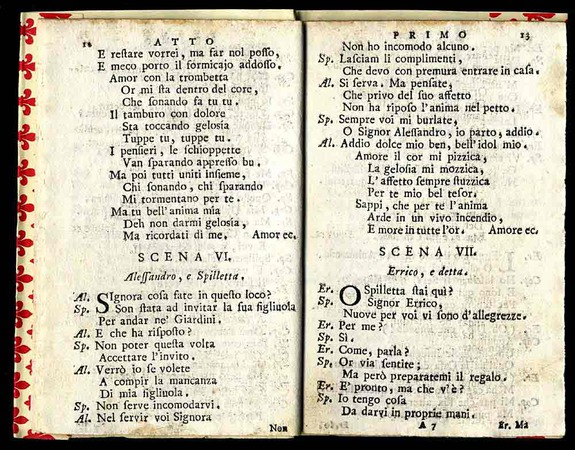 12 ATTO
E restare vorrei, ma far nol posso,
E meco porto il formicajo addosso.
Amor con la trombetta
Or mi sta dentro del core,
Che sonando fa tu tu.
Il tamburo con dolore
Sta toccando gelosia
Tuppe tu, tuppe tu.
I pensieri, le schioppette
Van sparando appresso bu.
Ma poi tutti uniti insieme,
Chi sonando, chi sparando
Mi tormentano per te.
Ma tu bell'anima mia
Deh non darmi gelosia,
Ma ricordati di me. Amor ec.
SCENA VI.
Alessandro, e Spilletta.
Al. SIgnora cosa fate in questo loco?
Sp. Son stata ad invitar la sua figliuola
Per andar ne' Giardini.
Al. E che ha risposto?
Sp. Non poter questa volta
Accettare l'invito.
Al. Verrò io se volete
A compir la mancanza
Di mia figliuola.
Sp. Non serve incomodarvi.
Al. Nel servir voi Signora
Non
PRIMO 13
Non ho incomodo alcuno.
Sp. Lasciam li complimenti,
Che devo con premura entrare in casa.
Al. Si serva. Ma pensate,
Che privo del suo affetto
Non ha riposo l'anima nel petto.
Sp. Sempre voi mi burlate,
O Signor Alessandro, io parto, addio.
Al. Addio dolce mio ben, bell'idol mio.
Amore il cor mi pizzica,
La gelosia mi mozzica,
L'affetto sempre stuzzica
Per te mio bel tesor.
Sappi, che per te l'anima
Arde in un vivo incendio,
E more in tutte l'or. Amore ec.
SCENA VII.
Errico, e detta.
Er. O Spilletta stai quì?
Sp. Signor Errico,
Nuove per voi vi sono d'allegrezze.
Er. Per me?
Sp. Sì.
Er. Come, parla?
Sp. Or via sentite;
Ma però preparatemi il regalo.
Er. E' pronto, ma che v'è?
Sp. Io tengo cosa
Da darvi in proprie mani.
A 7 Er. Ma